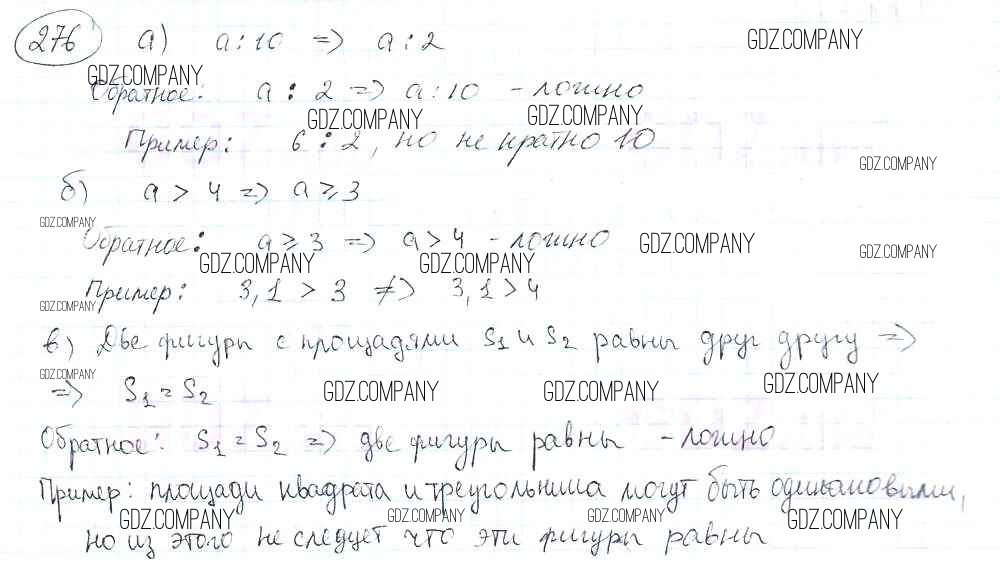 276 а) a : 10 => a : 2 GDZ.COMPANY
GDZ.COMPANY
Обратное: a : 2 => a : 10 - ложно
GDZ.COMPANY GDZ.COMPANY
Пример: 6 : 2, но не кратно 10
GDZ.COMPANY
б) a > 4 => a ≥ 3
GDZ.COMPANY
Обратное: a ≥ 3 => a > 4 - ложно GDZ.COMPANY
GDZ.COMPANY GDZ.COMPANY GDZ.COMPANY
Пример: 3,1 > 3 ≠> 3,1 > 4
GDZ.COMPANY
в) Две фигуры с площадями S1 и S2 равны друг другу =>
GDZ.COMPANY
=> S1 = S2 GDZ.COMPANY GDZ.COMPANY GDZ.COMPANY
Обратное: S1 = S2 => две фигуры равны - ложно
Пример: площади квадрата и треугольника могут быть одинаковыми,
GDZ.COMPANY GDZ.COMPANY GDZ.COMPANY GDZ.COMPANY
но из этого не следует что эти фигуры равны